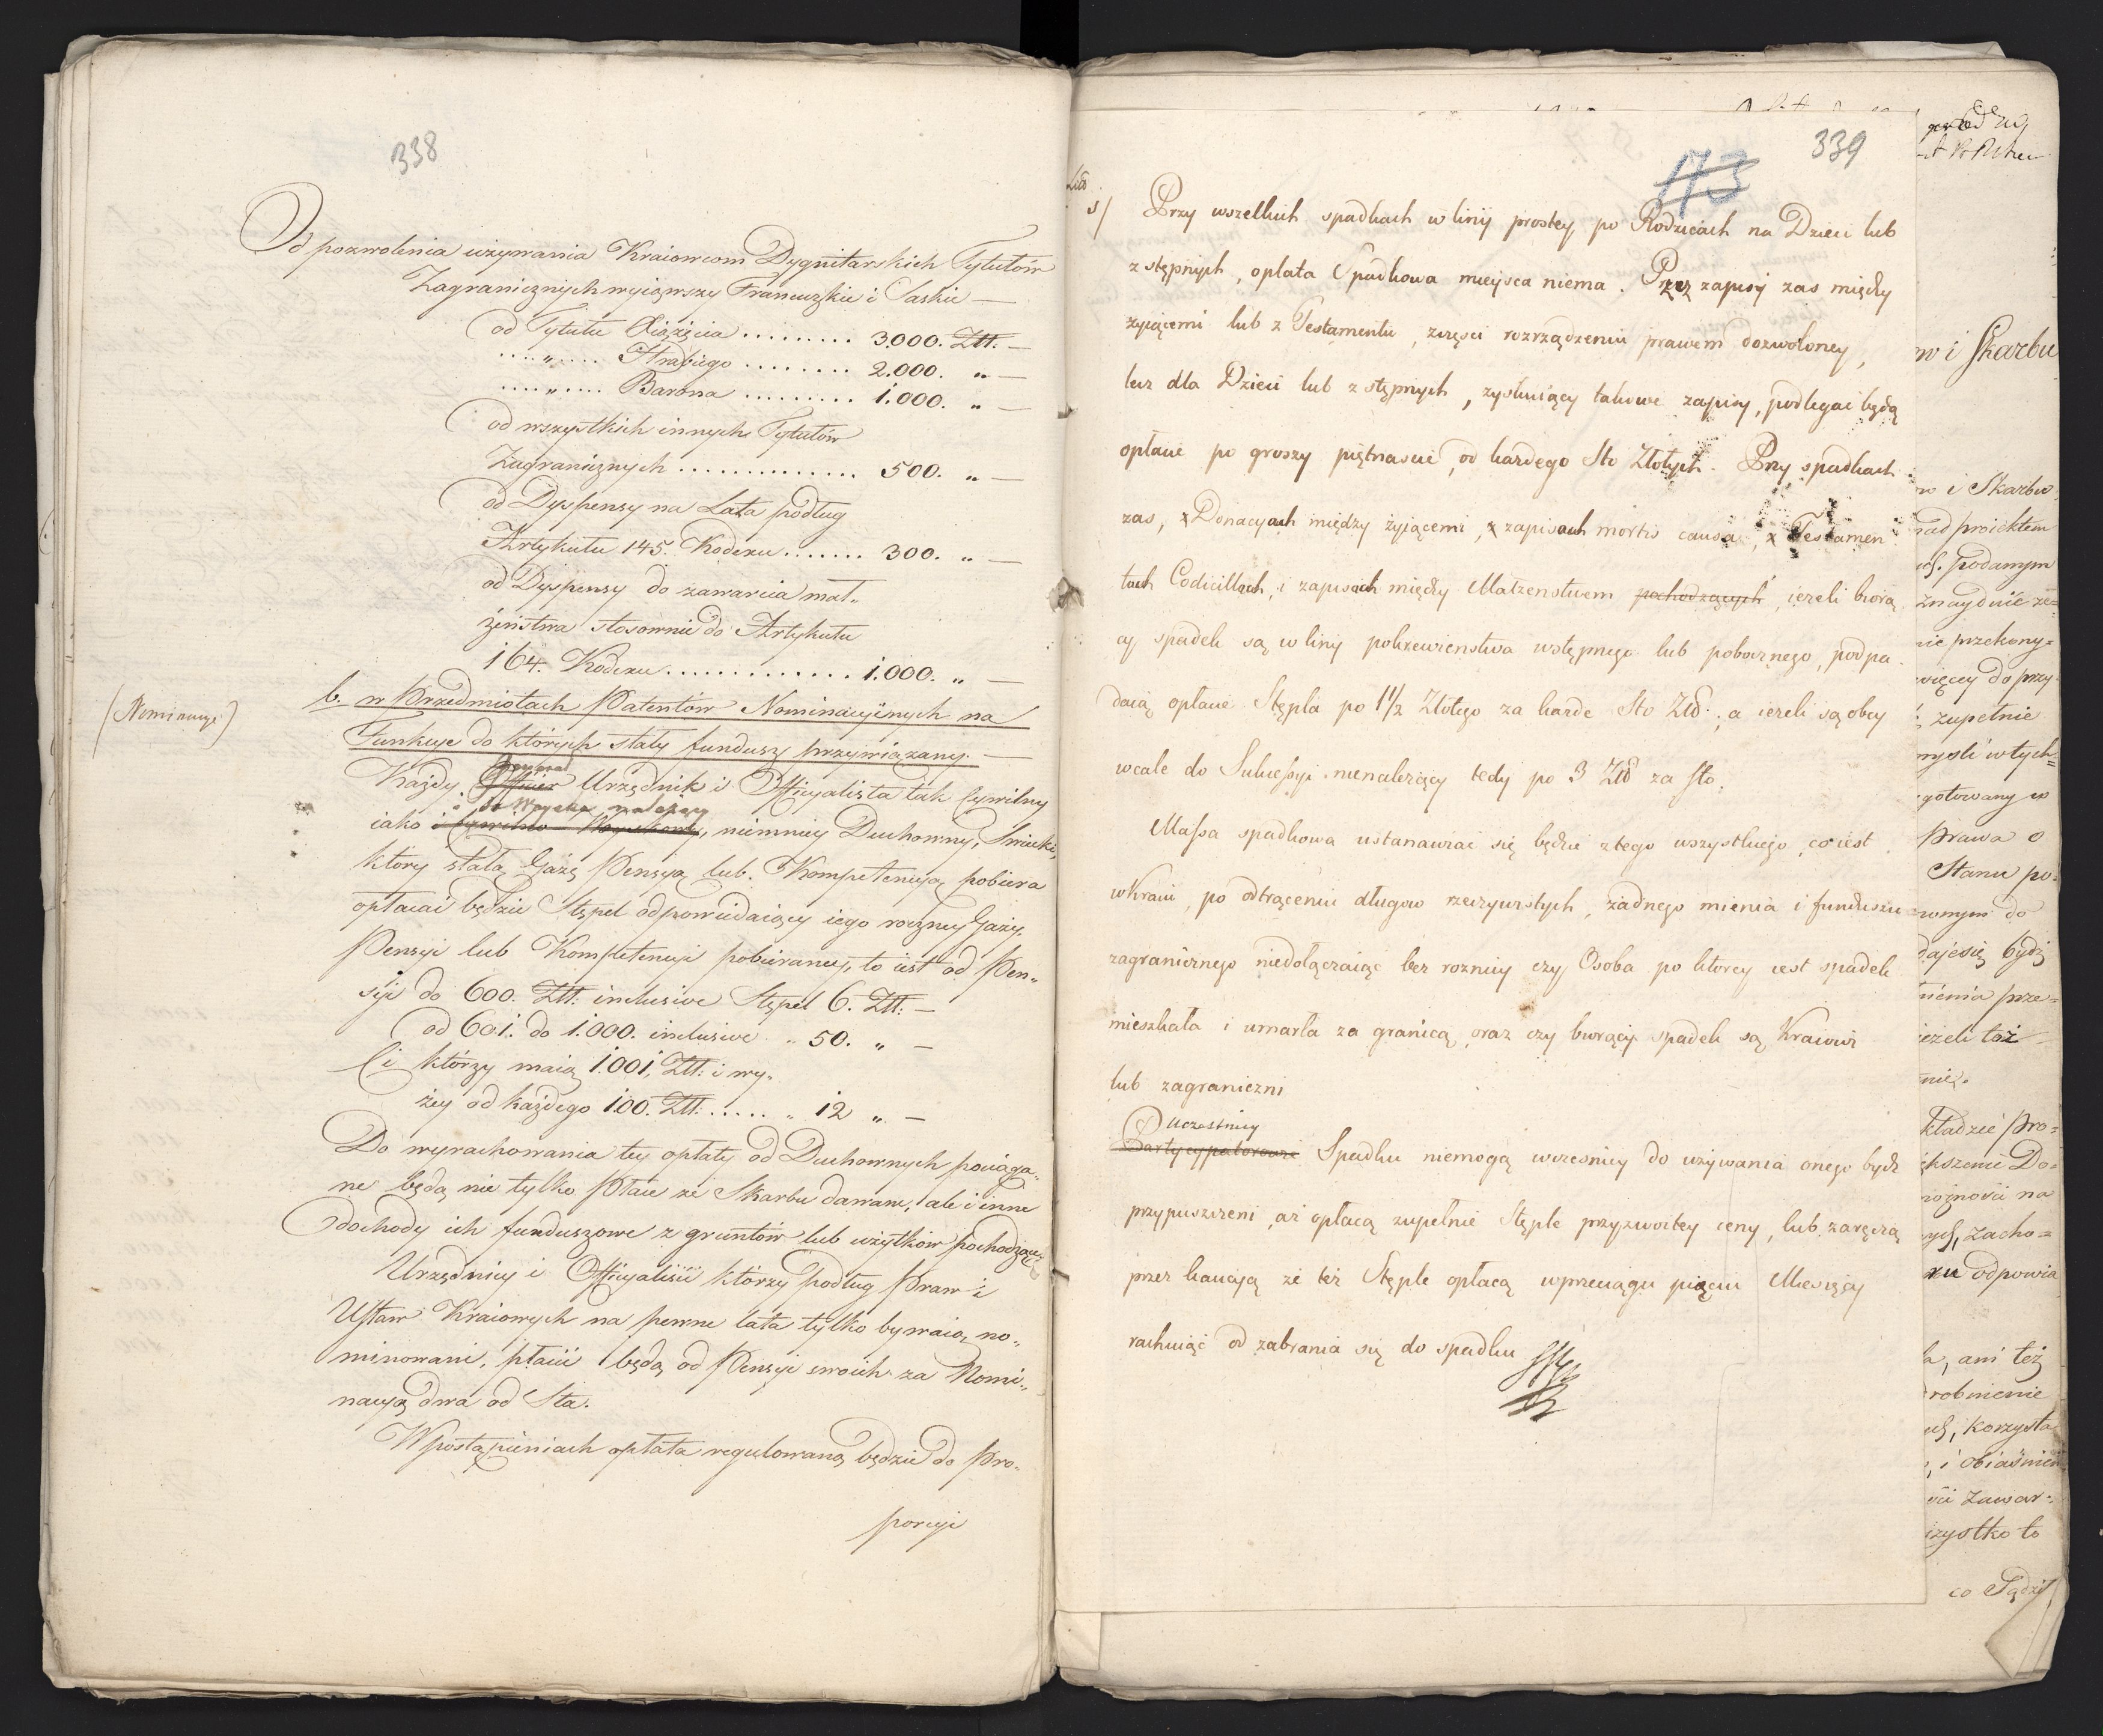 338
Od pozwolenia używania Kraiowcom Dygnitarskich Tytułów
Zagranicznych wyiąwszy Francuzkie i Saskie —
od Tytułu Xiążęcia ......... 3.000. Złł. —
....„..... Hrabiego ........ 2.000. „ —
....„..... Barona ......... 1.000. „ —
od wszystkich innych Tytułów
Zagranicznych .............. 500. „ —
od Dyspensy na Lata podług
Artykułu 145. Kodexu ....... 300. „ —
od Dyspensy do zawarcia mał„
żeństwa stosownie do Artykułu
164. Kodexu ............. 1.000. „ —
(Nominacye)
b. w Przedmiotach Patentów Nominacyinych na
Funkcye do których stały fundusz przywiązany. —
Każdy Officier Urzędnik i Officyalista tak Cywilny
i do Woyska należący
iako i Cywilno Woyskowy, niemniey Duchowny, Swiecki,
który stałą Gażę Pensyą lub Kompetencyą pobiera
opłacać będzie Stępel odpowiadaiący iego roczney Gaży,
Pensyi lub Kompetencyi pobieraney, to iest od Pen„
syi do 600. Złł. inclusive Stępel 6. Złł. —
od 601. do 1.000. inclusive „ 50. „ —
Ci którzy maią 1.001. Złł. i wy„
żey od każdego 100. Złł. ..... „ 12 „ —
Do wyrachowania tey opłaty od Duchownych pociąga„
ne będą nie tylko Płace ze Skarbu dawane, ale i inne
dochody ich funduszowe z gruntów lub użytków pochodzące
Urzędnicy i Officyaliści którzy podług Praw i
Ustaw Kraiowych na pewne lata tylko bywaią no„
minowani, płacić będą od Pensyi swoich za Nomi„
nacyą dwa od Sta.
W postąpieniach opłata regulowaną będzie do Pro„
porcyi
339
173
s/ Przy wszelkich spadkach w linij prostey po Rodzicach na Dzieci lub
zstępnych, opłata Spadkowa mieysca niema. Przez zapisy zas między
zyiącemi lub z Testamentu, zczęsci rozrządzeniu prawem dozwoloney,
lecz dla Dzieci lub zstępnych, zyskuiący takowe zapisy, podlegać będą
opłacie po groszy piętnascie, od kazdego Sto Złotych. Przy spadkach
zas, Donacyach między żyjącemi, zapisach mortis causa, Testamen
tach Codicillach, i zapisach między Małzenstwem pochodzących, iezeli biorą
cy spadek są w linij pokrewienstwa wstępnego lub pobocznego, podpa
daią opłacie Stępla po 1 1/2 Złotego za kazde Sto Złł., a iezeli są obcy
wcale do Sukcessyi nienalezący tedy po 3 Złł za sto.
Massa spadkowa ustanawiać się będzie z tego wszystkiego, co iest
w Kraiu, po odtrąceniu długow rzeczywistych, żadnego mienia i funduszu
zagranicznego niedołączaiąc bez roznicy czy Osoba po ktorey iest spadek
mieszkała i umarła za granicą, oraz czy biorący spadek są Kraiowi
lub zagraniczni
Uczestnicy
Partycypatorowie Spadku niemogą wczesniey do używania onego bydź
przypuszczeni, aż opłacą zupełnie Stęple przyzwoitey ceny, lub zaręczą
przez kaucyą że też Stęple opłacą wprzeciągu pięciu Miesięcy
rachuiąc od zabrania się do spadku
w i Skarbu
w i Skarbu
nad proiektem
podanym
znayduie ze=
nie przekony=
więcey do przy
zupełnie
mysli w tych=
gotowany w
Prawa o
Stanu po=
nomym do
daie się bydź
nienia prze=
ieżeli też
nie.
kładzie Pro=
kszenie Do=
rożności na
zacho=
odpowia
a, ani też
robnienie
korzysta
i obiaśnień
zawar=
szystko to
co Sądzi